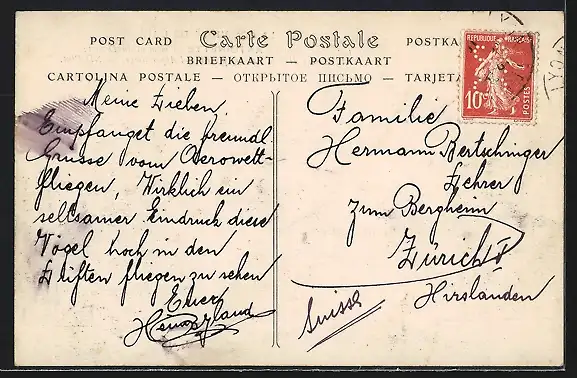 POST CARD Carte Postale POSTKA
BRIEFKAART — POSTKAART
CARTOLINA POSTALE — ОТКРЫТОЕ ПИСЬМО — TARJETA
Meine Lieben
Empfanget die freundl.
Grüsse vom Aerowett-
fliegen, Wirklich ein
seltsamer Eindruck diese
Vögel hoch in den
Lüften fliegen zu sehen
Euer
Familie
Hermann Bertschinger
Lehrer
zum Bergheim
Zürich V
Hirslanden
Suisse
REPUBLIQUE FRANÇAISE
10
POSTES
LYON